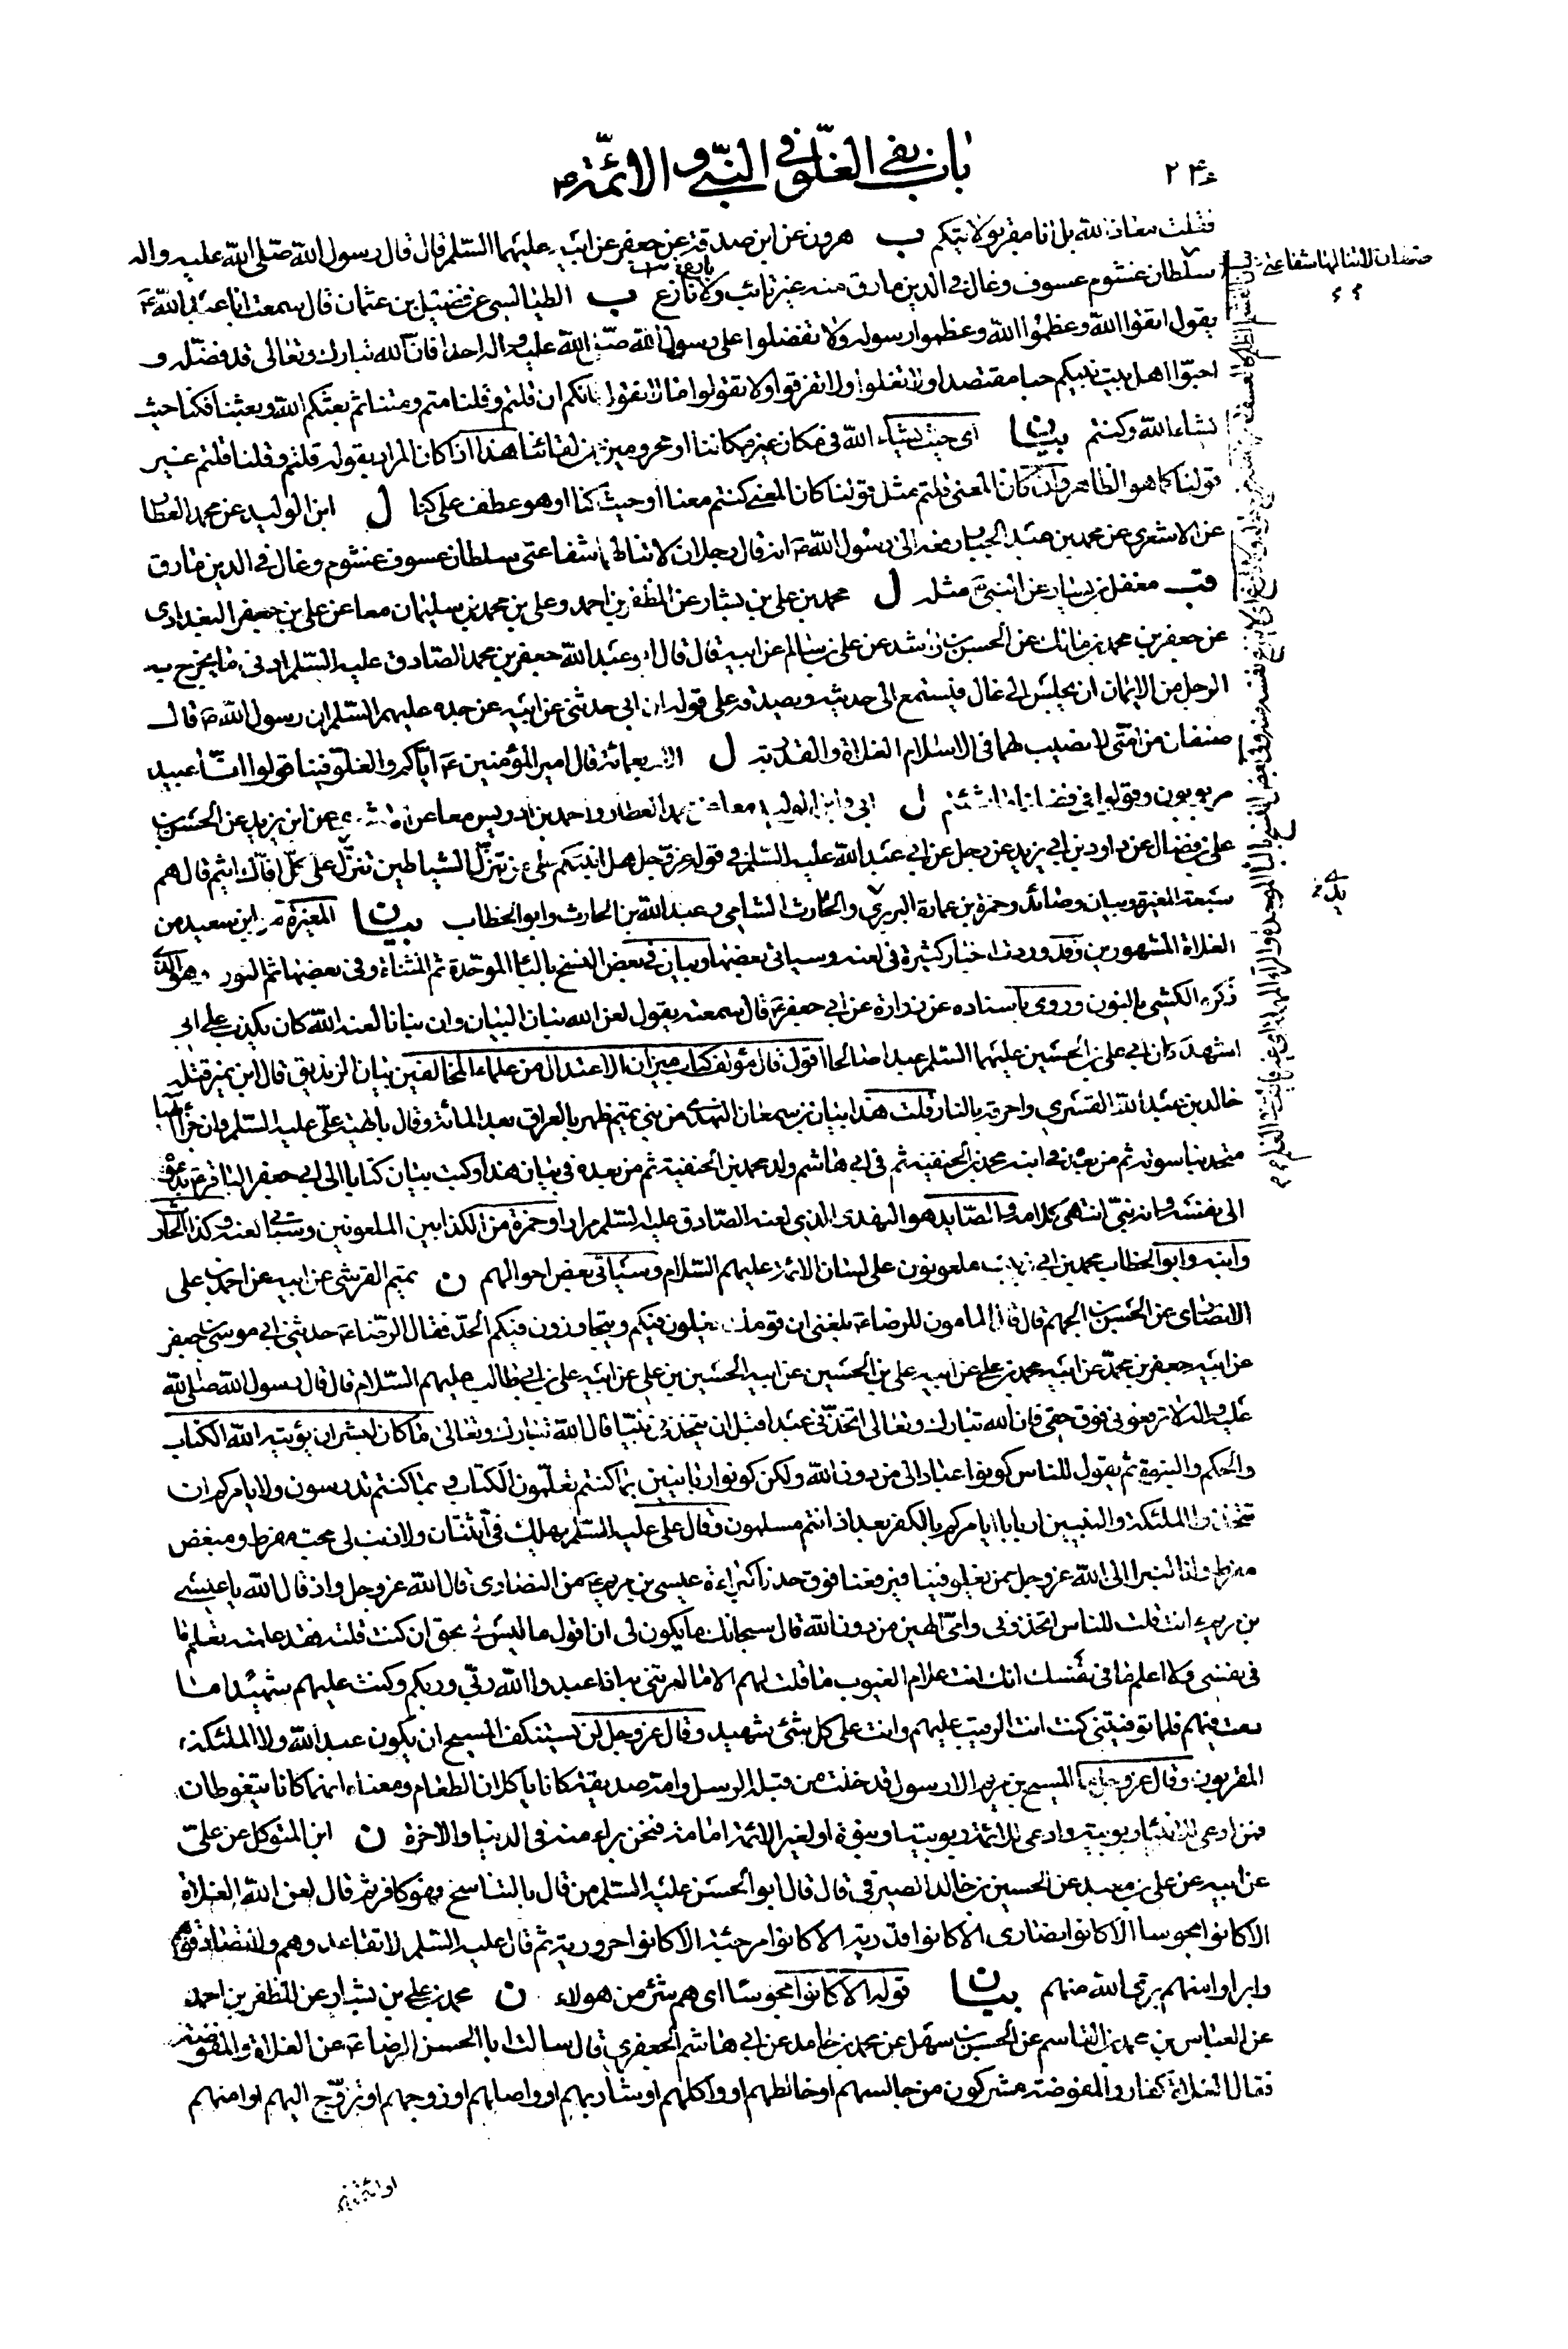 باب نفي الغلوّ في النبي و الائمّة ع
فقلت معاذ الله بل انا مقر بولايتكم ب هرون عن ابن صدقة عن جعفر عن ابيه عليهما السّلم قال قال رسول الله صلّى الله عليه واله
صنفان لا تنالهما شفاعتي
سلطان غشوم عسوف وغال في الدين مارق منه غير تائب ولا نازع ب الطيالسي عن فضيل بن عثمان قال سمعت ابا عبد الله ع
يقول اتقوا الله وعظموا الله وعظموا رسوله ولا تفضلوا على رسول الله صلى الله عليه واله احدا فانّ الله تبارك وتعالى قد فضّله و
احبّوا اهل بيت نبيكم حبا مقتصدا ولا تغلوا ولا تفرقوا ولا تقولوا ما لا نقول فانكم ان قلتم وقلنا متم ومتنا ثم بعثكم الله وبعثنا فكنا حيث
يشاء الله وكنتم بيان اى حيث يشاء الله في مكان غير مكاننا او محرومين من لقائنا هذا اذا كان المراد بقوله قلتم وقلنا قلتم غير
قولنا كما هو الظاهر وان كان المعنى قلتم بمثل قولنا كان المعنى كنتم معنا او حيث كنا او هو عطف على كنا ل ابن الوليد عن محمد العطار
عن الاشعري عن محمد بن عبد الجبار رفعه الى رسول الله ص انه قال رجلان لا تنالهما شفاعتي سلطان عسوف غشوم وغال في الدين مارق
قب مغفل بن يسار عن النبي ص مثله ل محمد بن علي بن بشار عن المظفر بن احمد وعلي بن محمد بن سليمان معا عن علي بن جعفر البغدادي
عن جعفر بن محمد بن مالك عن الحسن بن راشد عن علي بن سالم عن ابيه قال قال ابو عبد الله جعفر بن محمد الصادق عليه السّلم ادنى ما يخرج به
الرجل من الايمان ان يجلس الى غال فيستمع الى حديثه ويصدقه على قوله ان ابي حدثني عن ابيه عن جده عليهم السّلم ان رسول الله ص قال
صنفان من امتى لا نصيب لهما في الاسلام الغلاة والقدرية ل الاربعمائة قال امير المؤمنين ع اياكم والغلو فينا قولوا انّا عبيد
مربوبون وقولوا في فضلنا ما شئتم ل ابي وابن الوليد معا عن محمد العطار واحمد بن ادريس معا عن الاشعري عن ابن يزيد عن الحسن بن
علي بن فضال عن داود بن ابي يزيد عن رجل عن ابي عبد الله عليه السّلم في قوله عزّ وجل هل انبئكم على من تنزّل الشياطين تنزّل على كلّ افّاك اثيم قال هم
سبعة المغيرة وبيان وصائد وحمزة بن عمارة البربري والحارث الشامي وعبد الله بن الحارث وابو الخطاب بيان المغيرة هو ابن سعيد من
الغلاة المشهورين وقد وردت اخبار كثيرة في لعنه وسيأتي بعضها وبيان في بعض النسخ بالباء الموحّدة ثم المثناة وفي بعضها ثم النون وهو الذي
ذكره الكشي بالنون وروى باسناده عن زرارة عن ابي جعفر ع قال سمعته يقول لعن الله بنان البيان وان بنانا لعنه الله كان يكذب على ابي
اشهد كان ابي علي بن الحسين عليهما السّلم عبدا صالحا اقول قال مؤلف كتاب ميزان الاعتدال من علماء المخالفين بنان الزنديق قال ابن نمير قتله
خالد بن عبد الله القسري واحرقه بالنار قلت هذا بيان بن سمعان النهدى من بني تميم ظهر بالعراق بعد المائة وقال بالهية عليّ عليه السّلم وان جزأ الهيا
متحد بناسوته ثم من بعده في ابنه محمد بن الحنفية ثم في ابي هاشم ولد محمد بن الحنفية ثم من بعده في بنان هذا وكتب بنان كتابا الى ابي جعفر الباقر ع يدعوه
الى نفسه وانه نبيّ انتهى كلامه والصايد هو النهدى الذي لعنه الصّادق عليه السّلم مرارا وحمزة من الكذابين الملعونين وسيأتي لعنه وكذا الحارث
وابنه وابو الخطاب محمد بن ابي زينب ملعونون على لسان الائمة عليهم السّلام وسيأتي بعض احوالهم ن تميم القرشي عن ابيه عن احمد بن علي
الانصاري عن الحسن بن الجهم قال قال المامون للرضا ع بلغنى ان قوما يغلون فيكم ويتجاوزون فيكم الحدّ فقال الرّضا ع حدثني ابي موسى بن جعفر
عن ابيه جعفر بن محمّد عن ابيه محمد بن علي عن ابيه علي بن الحسين عن ابيه الحسين بن علي عن ابيه علي بن ابي طالب عليهم السّلام قال قال رسول الله صلى الله
عليه واله لا ترفعوني فوق حقي فان الله تبارك وتعالى اتخذني عبدا قبل ان يتخذني نبيّا قال الله تبارك وتعالى ما كان لبشر ان يؤتيه الله الكتاب
والحكم والنبوة ثم يقول للناس كونوا عبادا لي من دون الله ولكن كونوا ربانيين بما كنتم تعلّمون الكتاب وبما كنتم تدرسون ولا يامركم ان
تتخذوا الملئكة والنبيين اربابا ايامركم بالكفر بعد اذ انتم مسلمون وقال علي عليه السّلم يهلك في اثنان ولا ذنب لي محب مفرط ومبغض
مفرط وانا لنبرا الى الله عز وجل ممن يغلو فينا فيرفعنا فوق حدنا كبراءة عيسى بن مريم ع من النصارى قال الله عز وجل واذ قال الله يا عيسى
بن مريم ءانت قلت للناس اتخذوني وامّي الهين من دون الله قال سبحانك ما يكون لى ان اقول ما ليس لي بحق ان كنت قلته فقد علمته تعلم ما
في نفسي ولا اعلم ما في نفسك انك انت علام الغيوب ما قلت لهم الا ما امرتني به ان اعبدوا الله ربّي وربكم وكنت عليهم شهيدا ما
دمت فيهم فلما توفيتني كنت انت الرقيب عليهم وانت على كل شئ شهيد وقال عز وجل لن يستنكف المسيح ان يكون عبدا لله ولا الملئكة
المقربون وقال عز وجل ما المسيح بن مريم الا رسول قد خلت من قبله الرسل وامه صديقة كانا ياكلان الطعام ومعناه انهما كانا يتغوطان
فمن ادعى للانبياء ربوبية وادعى للائمة ربوبية او نبوة او لغير الائمة امامة فنحن براء منه في الدنيا والاخرة ن ابن المتوكل عن عليّ
عن ابيه عن علي بن معبد عن الحسين بن خالد الصيرفي قال قال ابو الحسن عليه السّلم من قال بالتناسخ فهو كافر ثم قال لعن الله الغلاة
الا كانوا مجوسا الا كانوا نصارى الا كانوا قدرية الا كانوا مرجئة الا كانوا حرورية ثم قال عليه السّلم لا تقاعدوهم ولا تصادقوهم
وابراوا منهم برئ الله منهم بيان قوله الا كانوا مجوسا اى هم شرّ من هولاء ن محمد بن علي بن بشار عن المظفر بن احمد
عن العباس بن محمد بن القاسم عن الحسن بن سهل عن محمد بن حامد عن ابي هاشم الجعفري قال سالت ابا الحسن الرضا ع عن الغلاة والمفوضة
فقال الغلاة كفار والمفوضة مشركون من جالسهم او خالطهم او واكلهم او شاربهم او واصلهم او زوجهم او تزوّج اليهم او امنهم